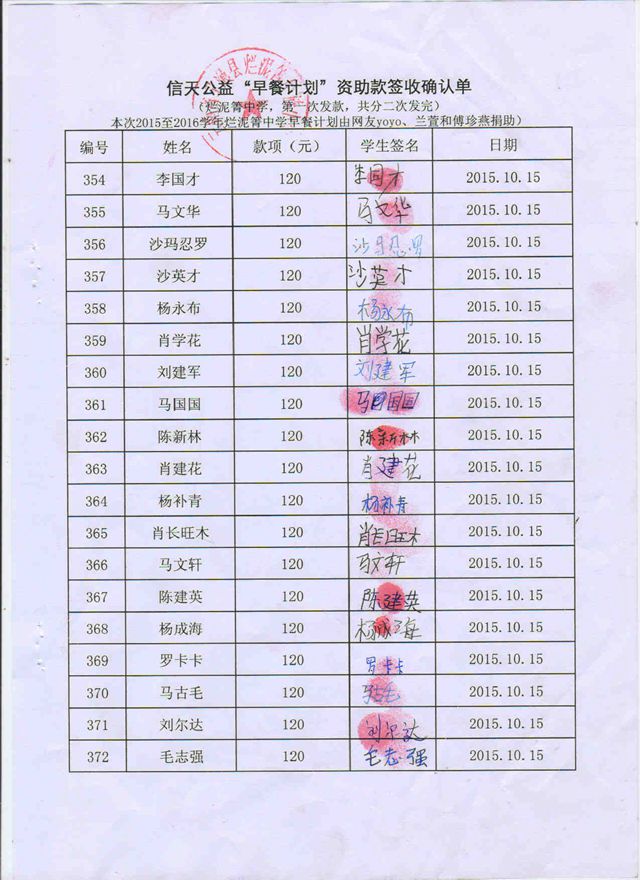 信天公益“早餐计划”资助款签收确认单
（烂泥箐中学，第一次发款，共分二次发完）
本次2015至2016学年烂泥箐中学早餐计划由网友yoyo、兰萱和傅珍燕捐助）
编号 姓名 款项（元） 学生签名 日期
354 李国才 120 李国才 2015.10.15
355 马文华 120 马文华 2015.10.15
356 沙玛忍罗 120 沙玛忍罗 2015.10.15
357 沙英才 120 沙英才 2015.10.15
358 杨永布 120 杨永布 2015.10.15
359 肖学花 120 肖学花 2015.10.15
360 刘建军 120 刘建军 2015.10.15
361 马国国 120 马国国 2015.10.15
362 陈新林 120 陈新林 2015.10.15
363 肖建花 120 肖建花 2015.10.15
364 杨补青 120 杨补青 2015.10.15
365 肖长旺木 120 肖长旺木 2015.10.15
366 马文轩 120 马文轩 2015.10.15
367 陈建英 120 陈建英 2015.10.15
368 杨成海 120 杨成海 2015.10.15
369 罗卡卡 120 罗卡卡 2015.10.15
370 马古毛 120 马古毛 2015.10.15
371 刘尔达 120 刘尔达 2015.10.15
372 毛志强 120 毛志强 2015.10.15